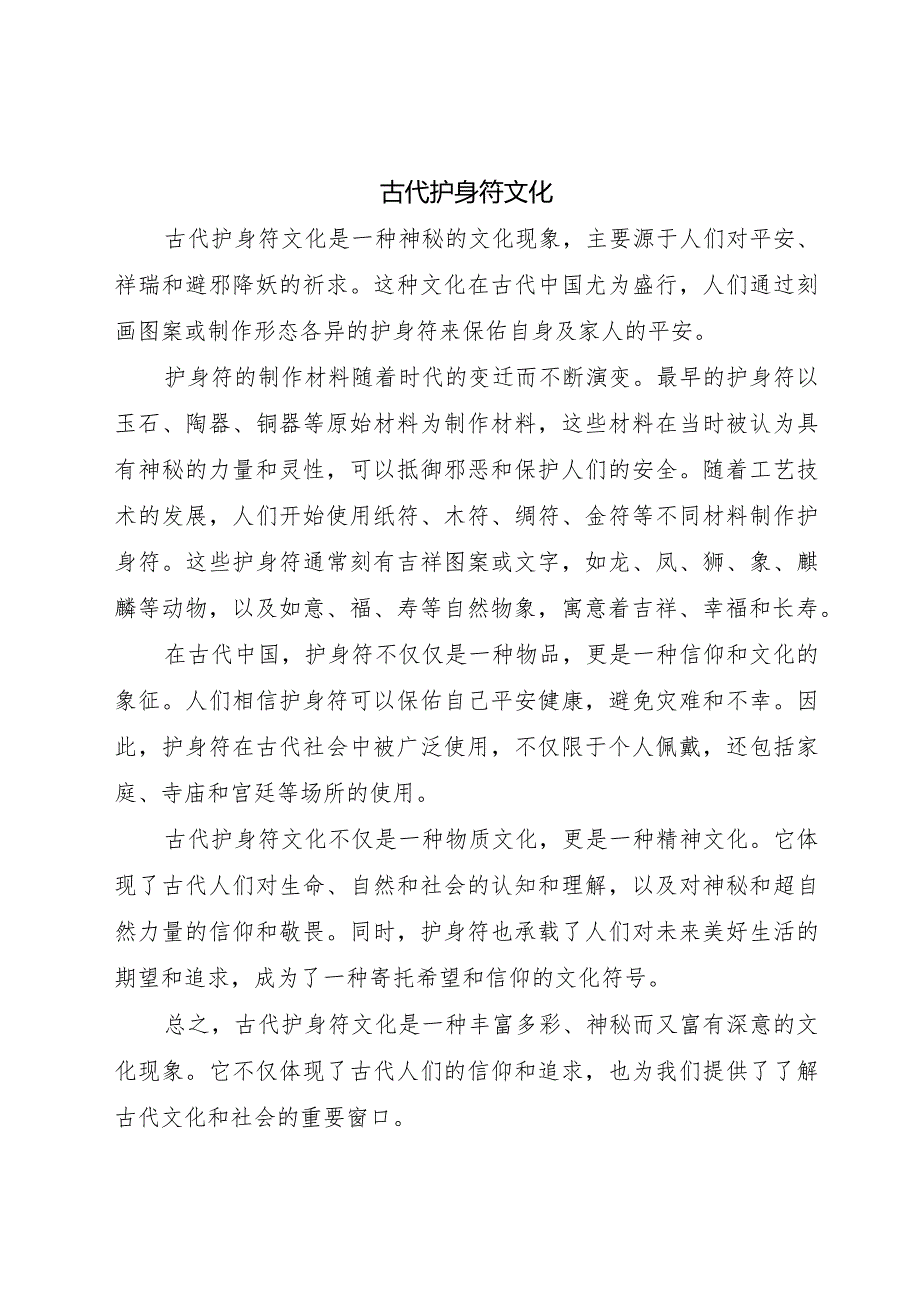 古代护身符文化
古代护身符文化是一种神秘的文化现象，主要源于人们对平安、
祥瑞和避邪降妖的祈求。这种文化在古代中国尤为盛行，人们通过刻
画图案或制作形态各异的护身符来保佑自身及家人的平安。
护身符的制作材料随着时代的变迁而不断演变。最早的护身符以
玉石、陶器、铜器等原始材料为制作材料，这些材料在当时被认为具
有神秘的力量和灵性，可以抵御邪恶和保护人们的安全。随着工艺技
术的发展，人们开始使用纸符、木符、绸符、金符等不同材料制作护
身符。这些护身符通常刻有吉祥图案或文字，如龙、凤、狮、象、麒
麟等动物，以及如意、福、寿等自然物象，寓意着吉祥、幸福和长寿。
在古代中国，护身符不仅仅是一种物品，更是一种信仰和文化的
象征。人们相信护身符可以保佑自己平安健康，避免灾难和不幸。因
此，护身符在古代社会中被广泛使用，不仅限于个人佩戴，还包括家
庭、寺庙和宫廷等场所的使用。
古代护身符文化不仅是一种物质文化，更是一种精神文化。它体
现了古代人们对生命、自然和社会的认知和理解，以及对神秘和超自
然力量的信仰和敬畏。同时，护身符也承载了人们对未来美好生活的
期望和追求，成为了一种寄托希望和信仰的文化符号。
总之，古代护身符文化是一种丰富多彩、神秘而又富有深意的文
化现象。它不仅体现了古代人们的信仰和追求，也为我们提供了了解
古代文化和社会的重要窗口。